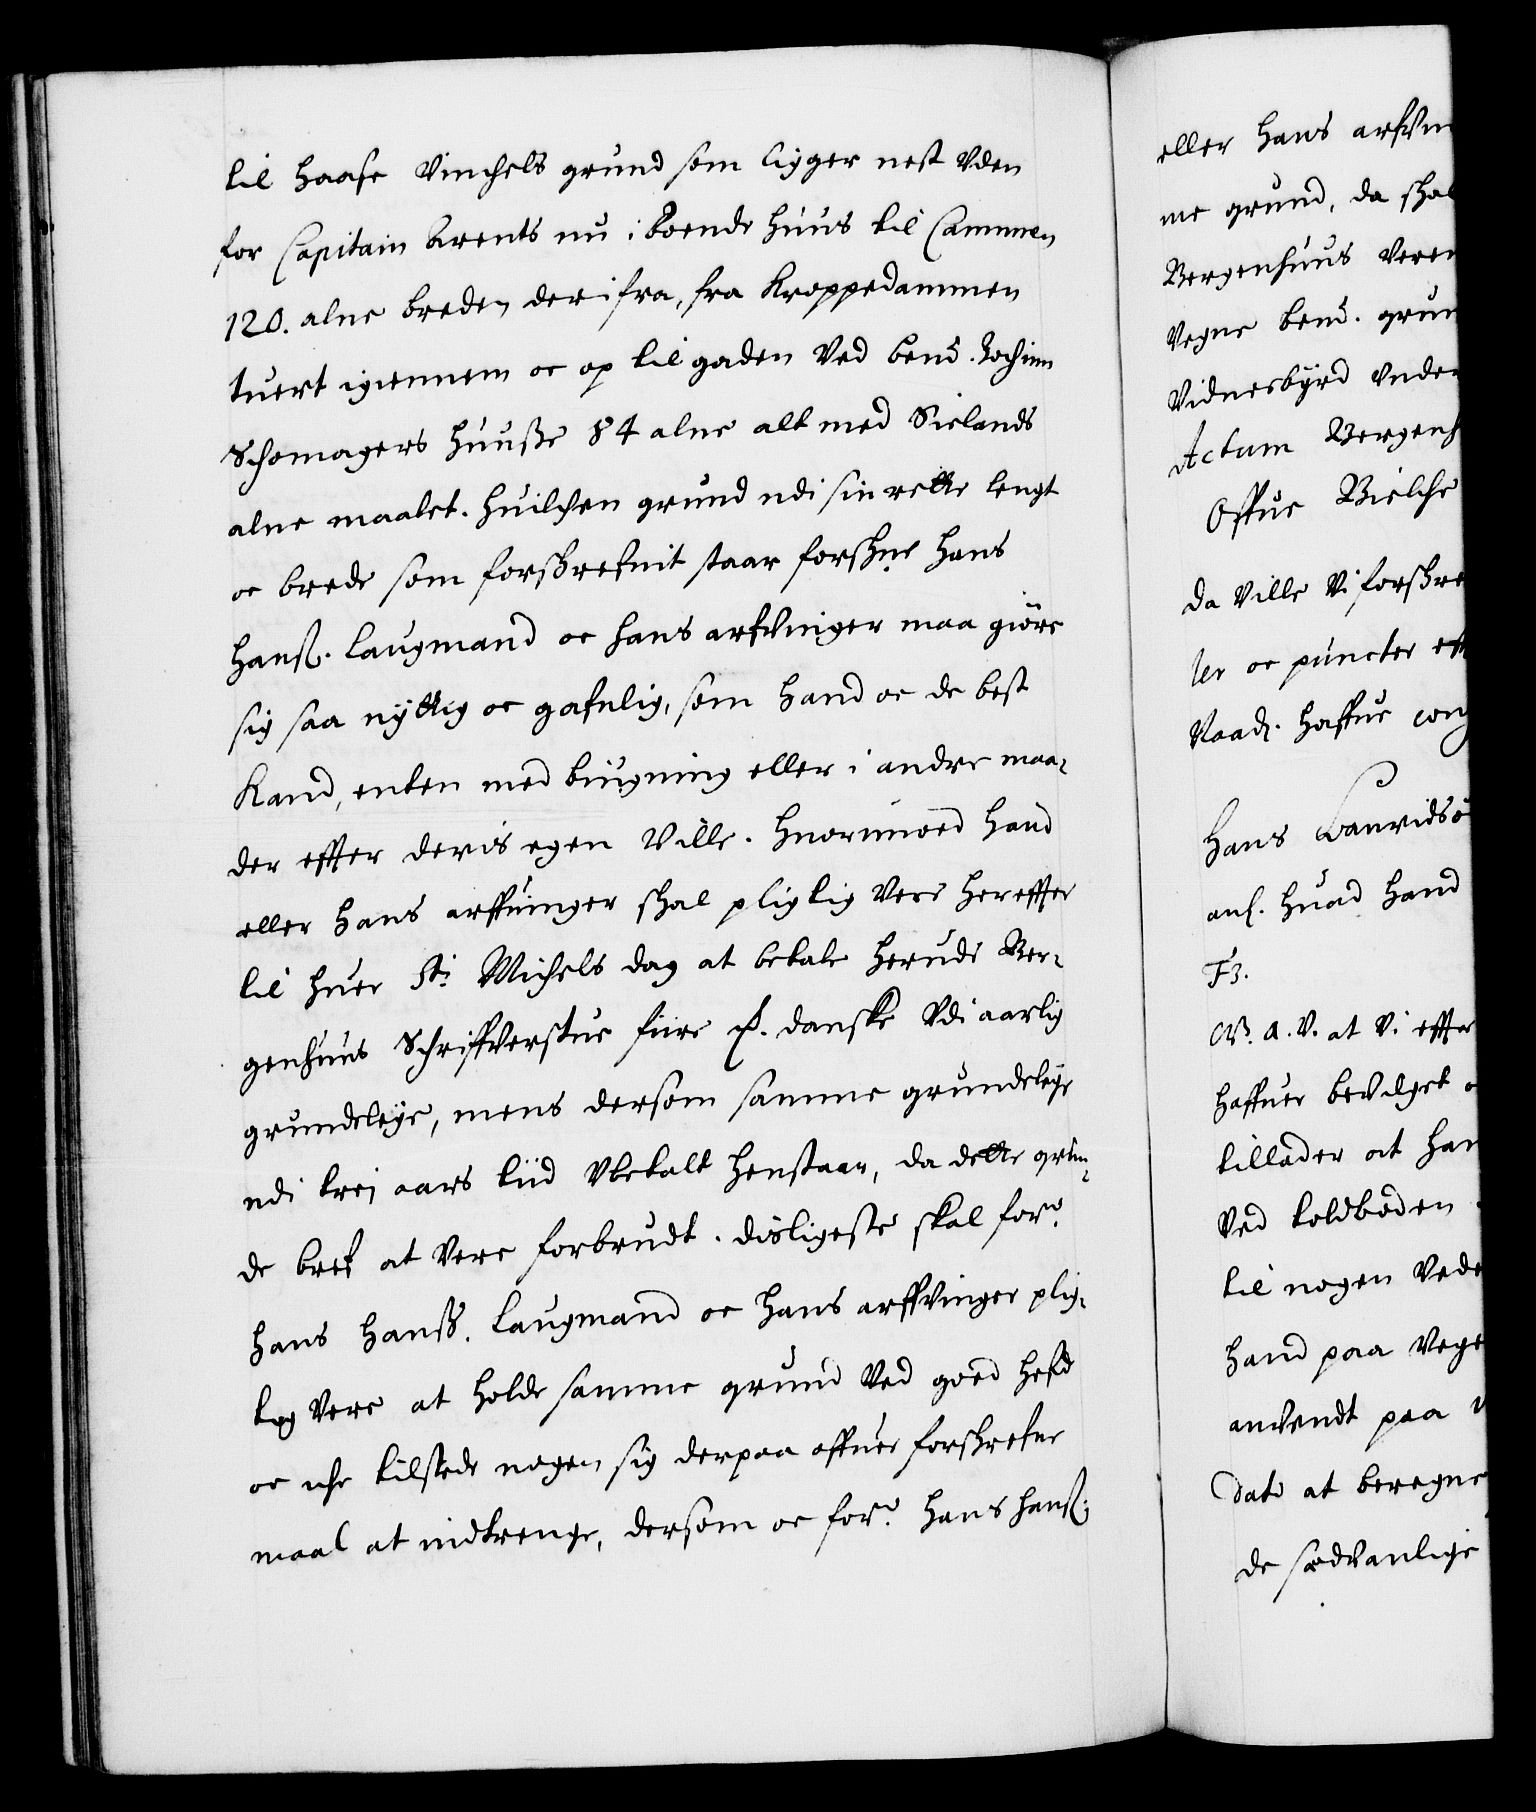 til Haafe Vinchels grund som ligger nest Vden
for Capitain Arents nu iboende huus til Cammen
120. alne breden derifra, fra Kroppedammen
tuert igiennem oc op til gaden Ved bemd. Jochim
Schomagers huusße 84 alne alt med Sielands
alne maalet. Huilchen grund udi sin rette lengt
oc brede som forskrefuit staar forschne Hans
Hanß. Laugmand oc hans arfvinger maa giöre
sig saa nyttig oc gafnlig, som hand oc de best
Kand, enten med biugning eller i andre maa-
der effter deris egen Ville. Huorimoed hand
eller hans arffuinger schal pligtig Vere hereffter
til huer St: Michels dag at betale herudi Ber-
genhuus Schriffverstue fiire ß. danske Vdi aarlig
grundeleye, mens dersom samme grundeleye
udi trej aars tiid Vbetalt henstaar, da dette grun-
de bref at Vere forbrudt. disligeste skal for:
Hans Hanß. Laugmand oc hans arffvinger plig-
tig Vere at holde samme grund Ved goed hefd
oc iche tilstede nogen sig derpaa offuer forskrefne
maal at indtrenge, dersom oc for: Hans Hanß:
eller hans arfvin
me grund, da schal
Bergenhuus Veren
Vegne bemd. grun
Vidnesbyrd Vnder
Actum Bergenh
Offue Bielche
da Ville Vi forskre
ler oc puncter eff
Naadr. haffue con
Hans Lauridsö
anl. huad hand
F3.
G. A. V. at Vi effter
haffuer bevilget o
tillader at han
Ved toldboden
til nogen Vede
hand paa Vege
anvendt paa V
dato at beregne
de sedvanlige